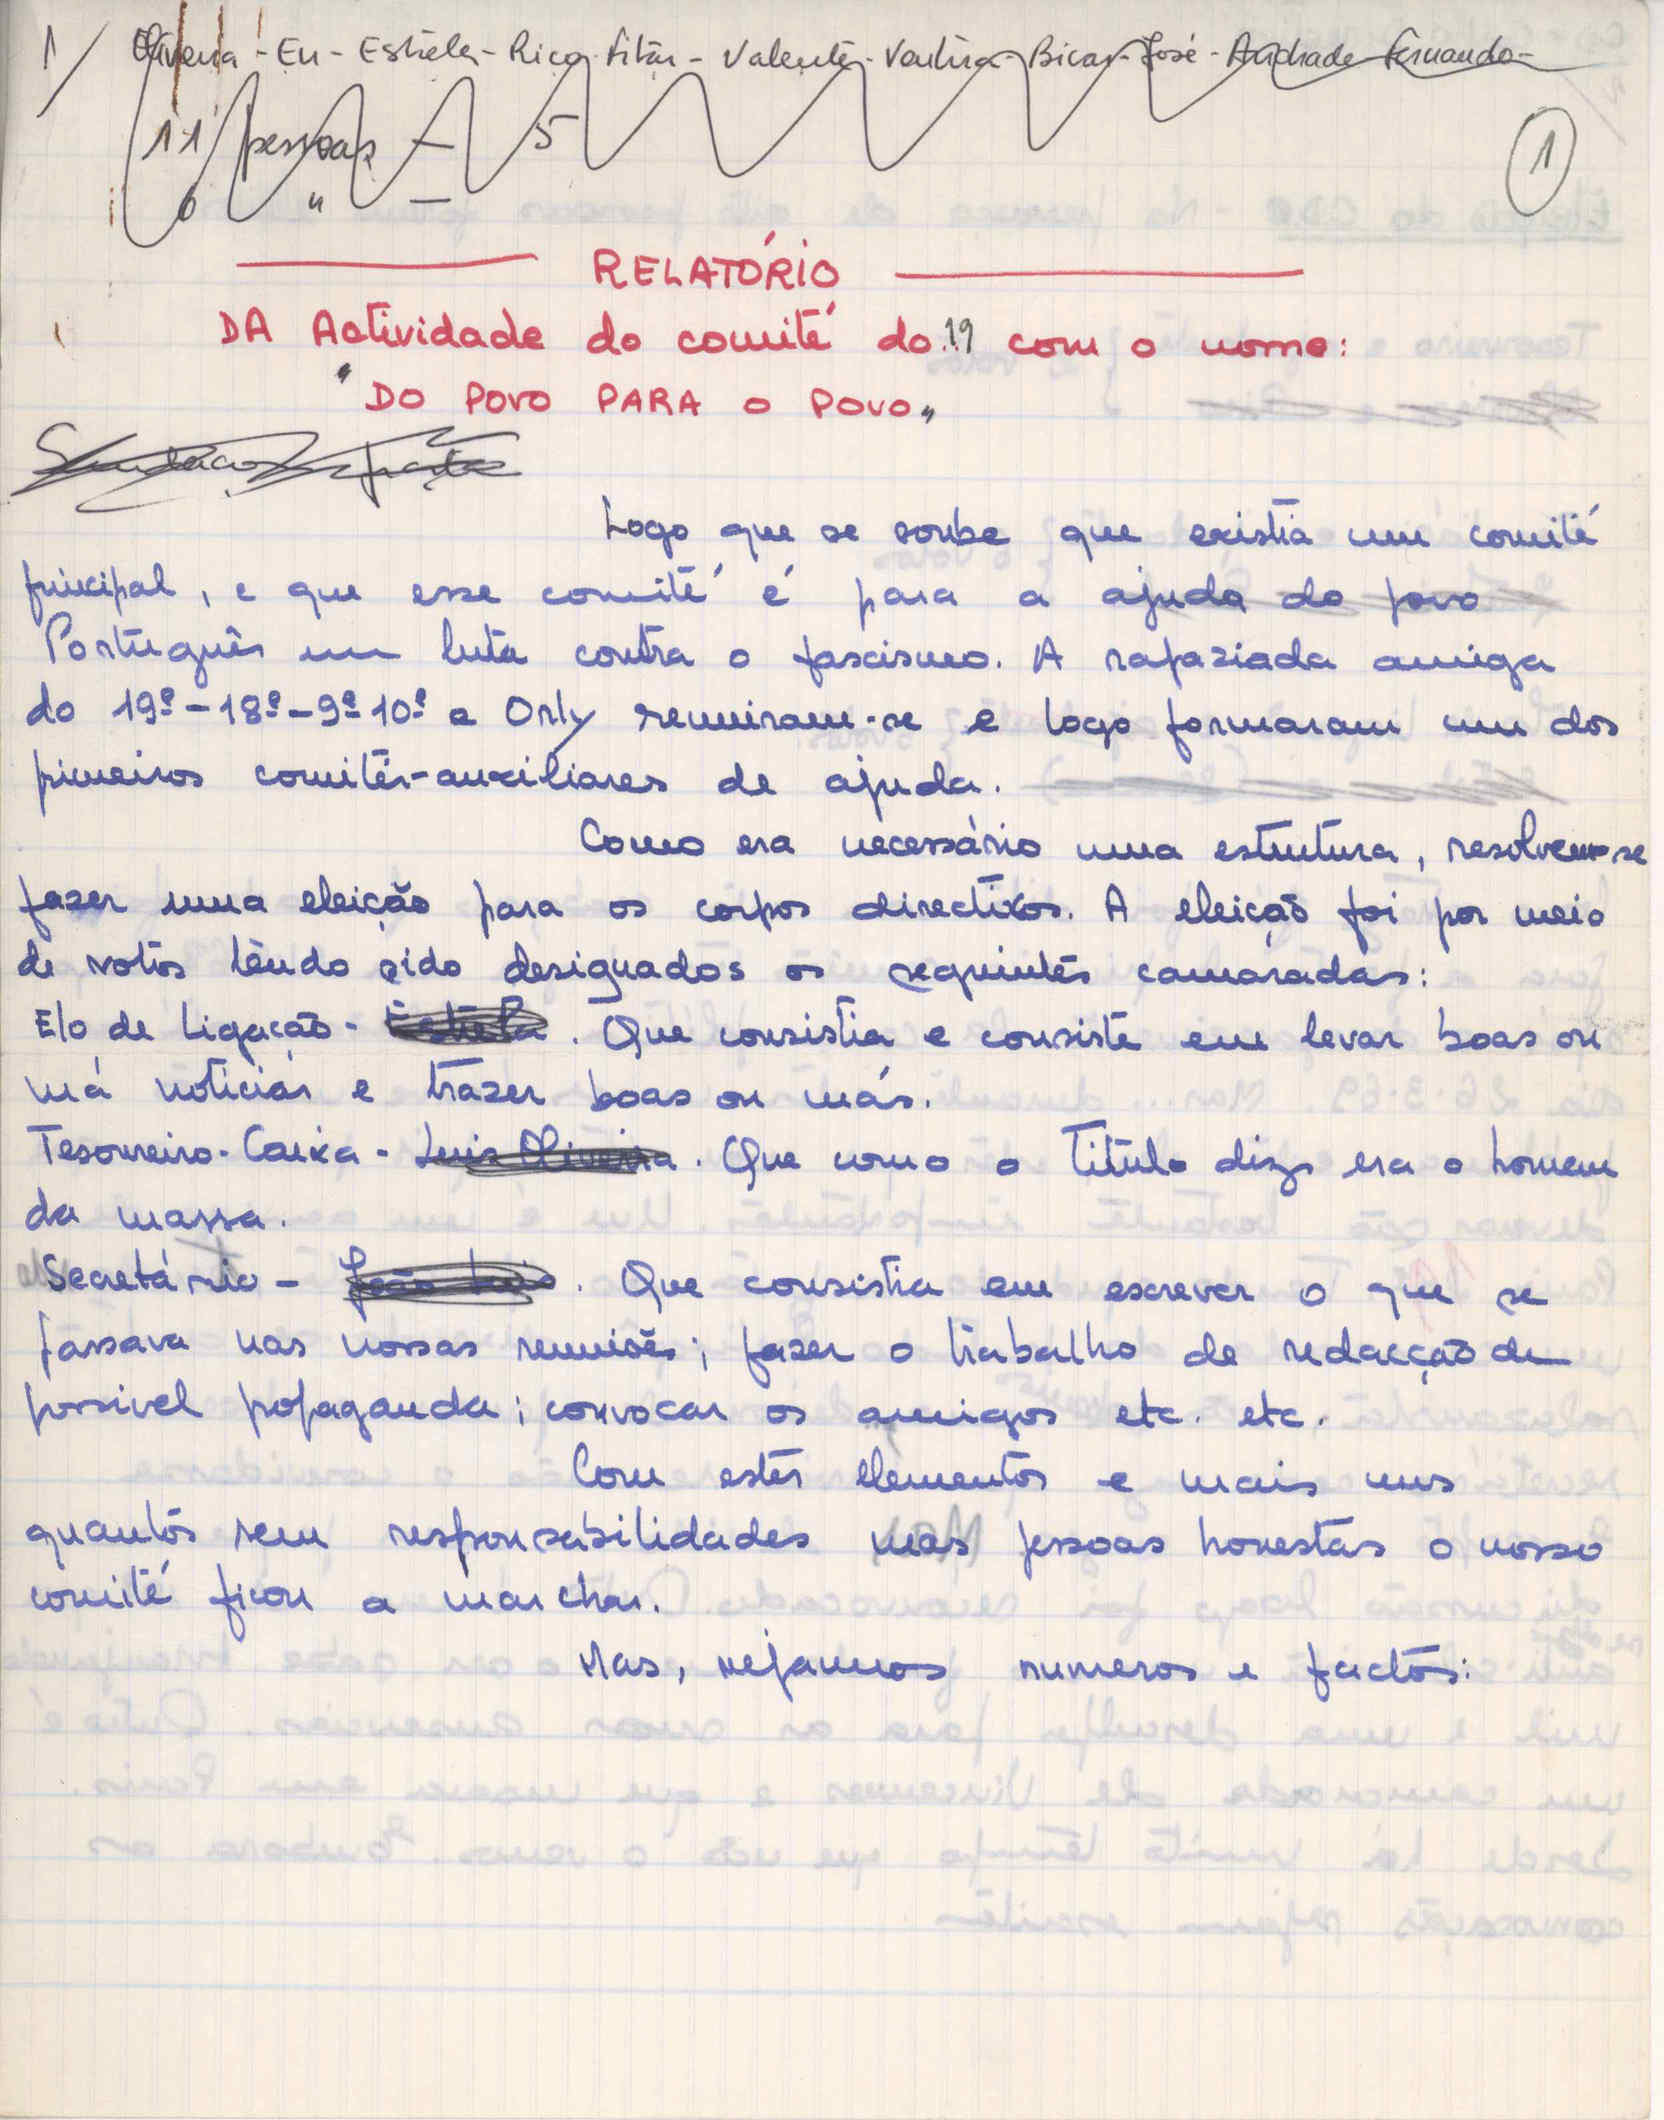 1/ Oliveira - Eu - Estrêla - Rico - - Valente - Ventura - Bicas - José - Andrade - Fernando -
11 pessoas - 5
6 " -
1
RELATÓRIO
DA Actividade do comité do 19 com o nome:
"DO POVO PARA O POVO"
Logo que se soube que existia um comité
principal, e que esse comité é para a ajuda do povo
Português em luta contra o fascismo. A rapaziada amiga
do 19º-18º-9º-10º e Orly reuniram-se e logo formaram um dos
primeiros comités-auxiliares de ajuda.
Como era necessário uma estrutura, resolveu-se
fazer uma eleição para os corpos directivos. A eleição foi por meio
de votos tendo sido designados os seguintes camaradas:
Elo de Ligação - Estrela. Que consistia e consiste em levar boas ou
má noticias e trazer boas ou más.
Tesoureiro-Caixa - Luis Oliveira. Que como o Titulo diz, era o homem
da massa.
Secretário - João Luis. Que consistia em escrever o que se
passava nas nossas reuniões; fazer o trabalho de redacção de
possivel propaganda; convocar os amigos etc. etc.
Com estes elementos e mais uns
quantos sem responsabilidades mas pessoas honestas o nosso
comité ficou a marchar.
Mas, vejamos numeros e factos: